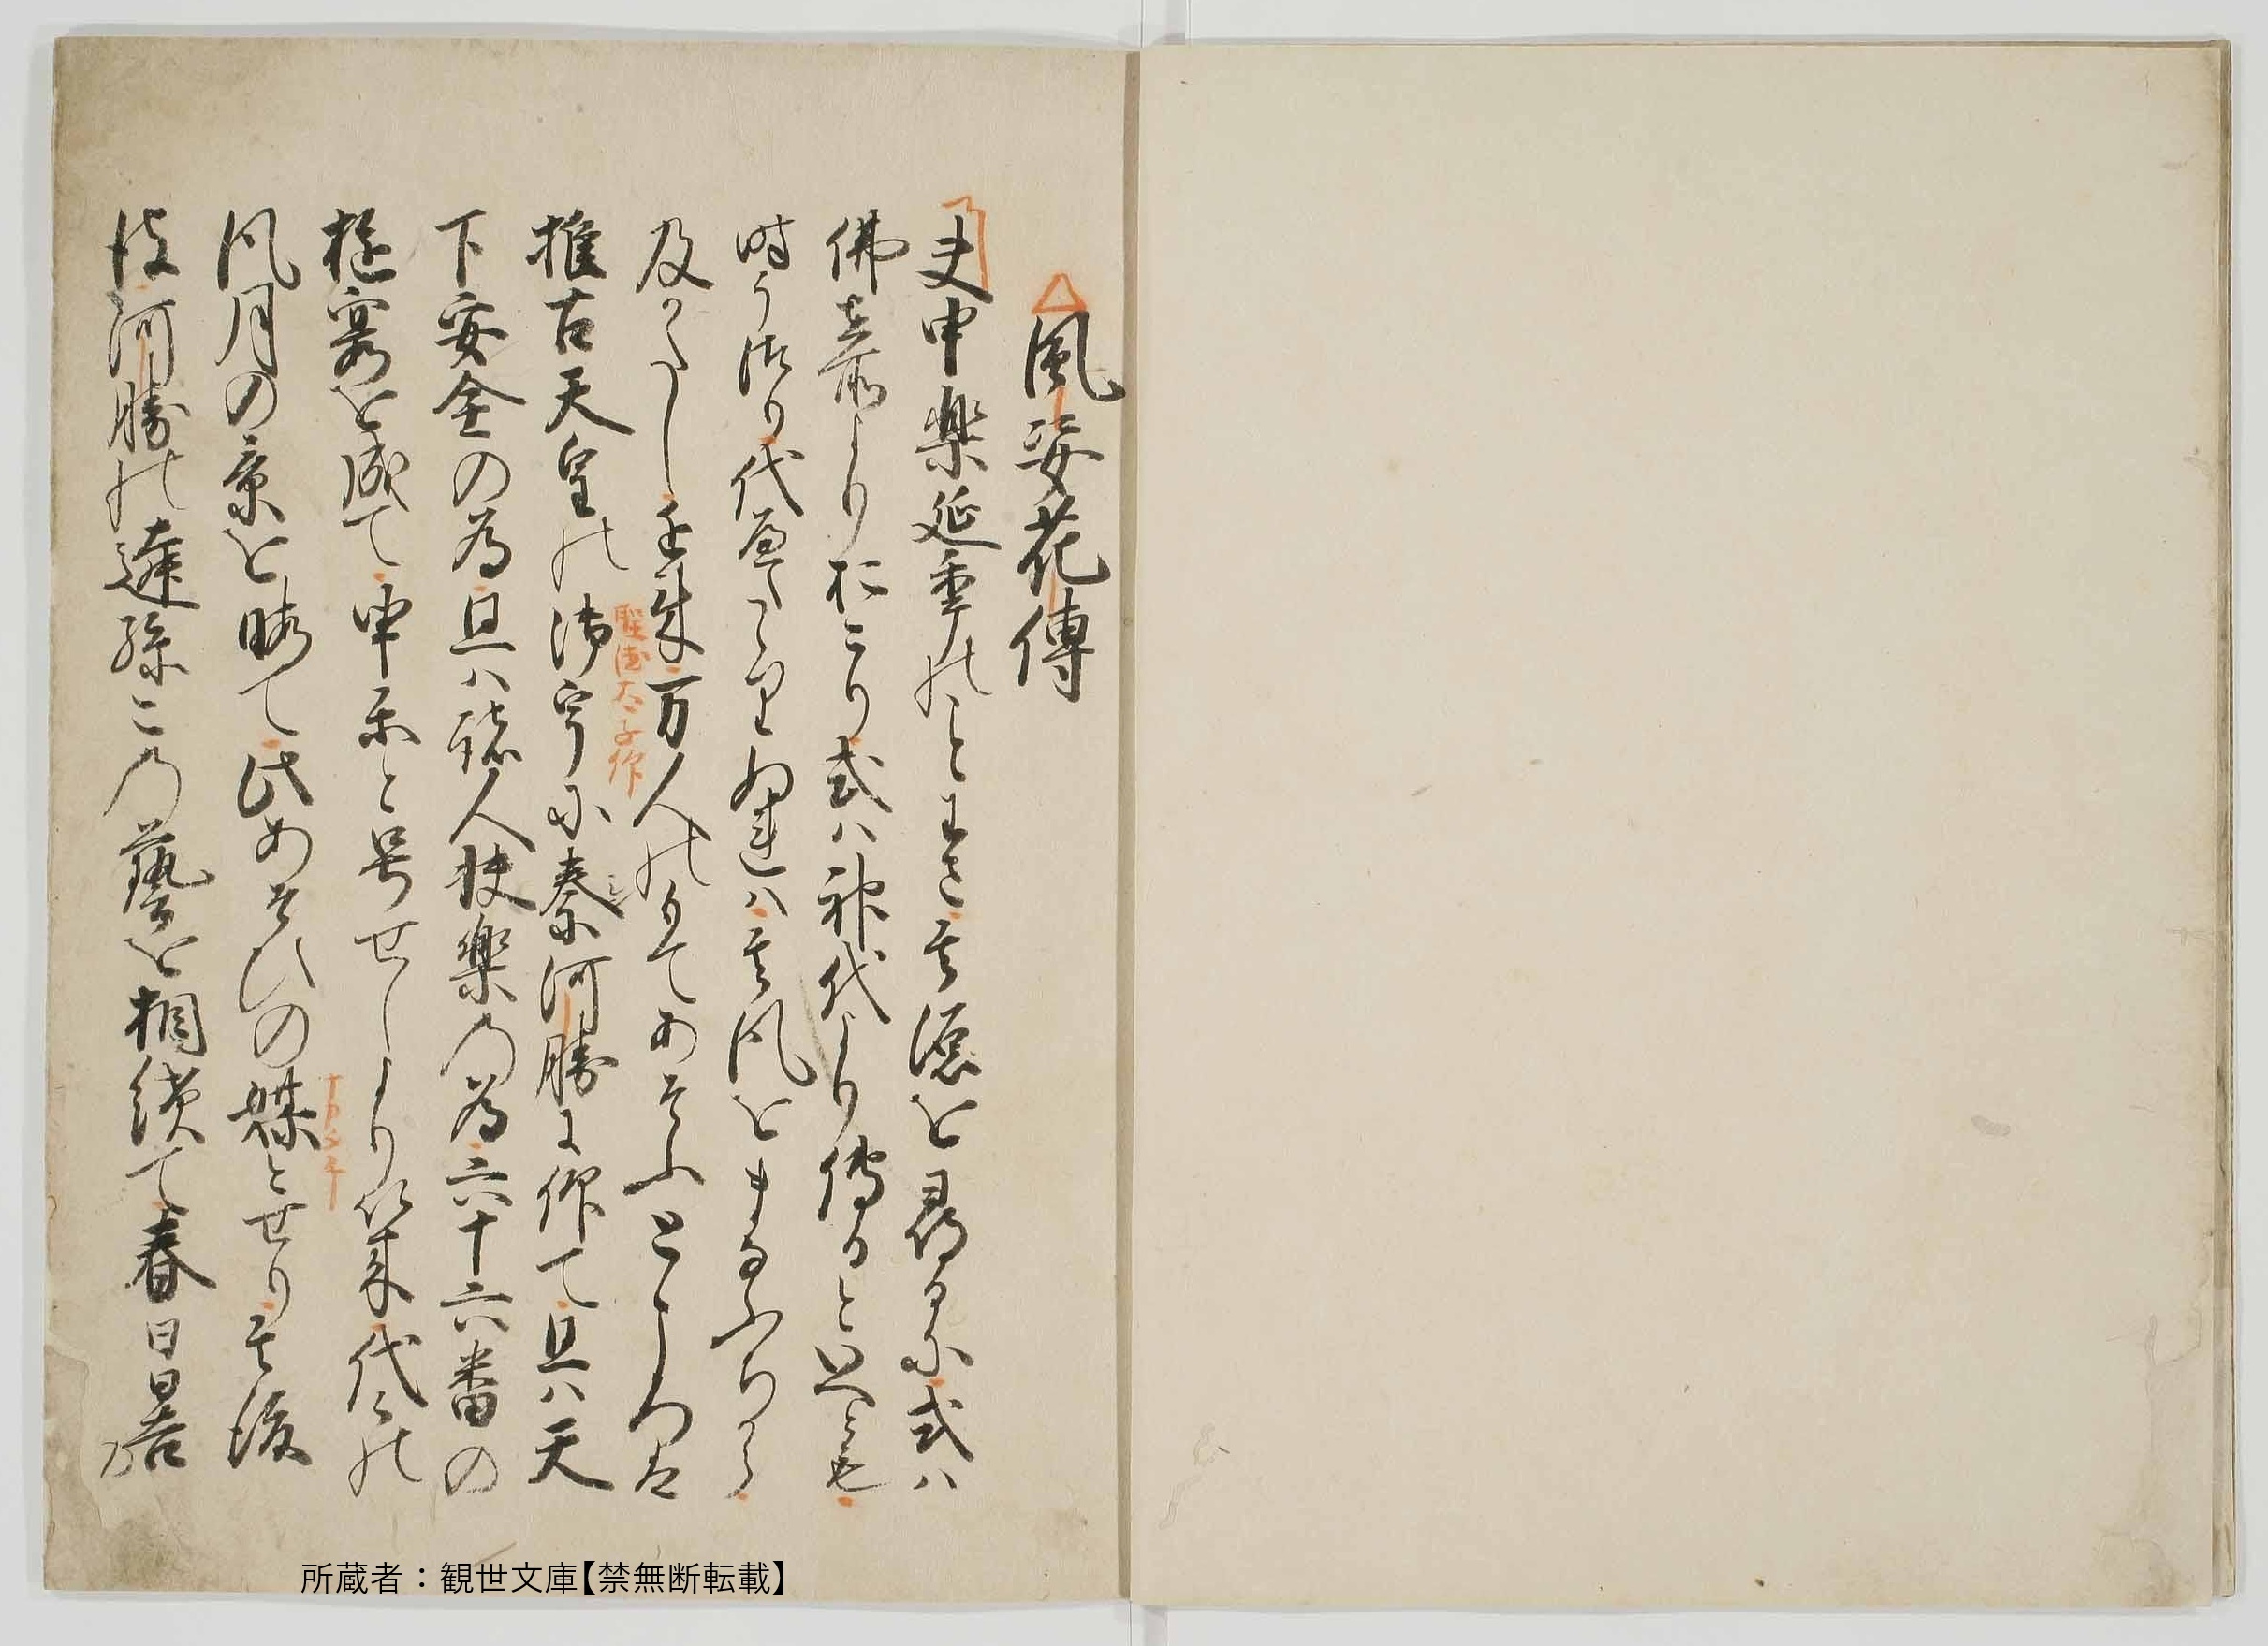 風姿花傳
夫申楽延年のことわさ其源を尋るに或ハ
佛在所よりおこり或ハ神代より傳ると云とも
時うつり代へたゝりぬれハ其風をまなふちから
及かたし近来万人のもてあそふところは
推古天皇の御宇に秦河勝に作て且ハ天
聖徳太子作
下安全の為且ハ諸人快楽の為六十六番の
遊宴を成て申楽と号せしより以来代々の
風月の景を暇て此あそひの媒とせり其後
ナカタチ
彼河勝の遠孫この藝を相続て春日日吉の
所蔵者：観世文庫【禁無断転載】